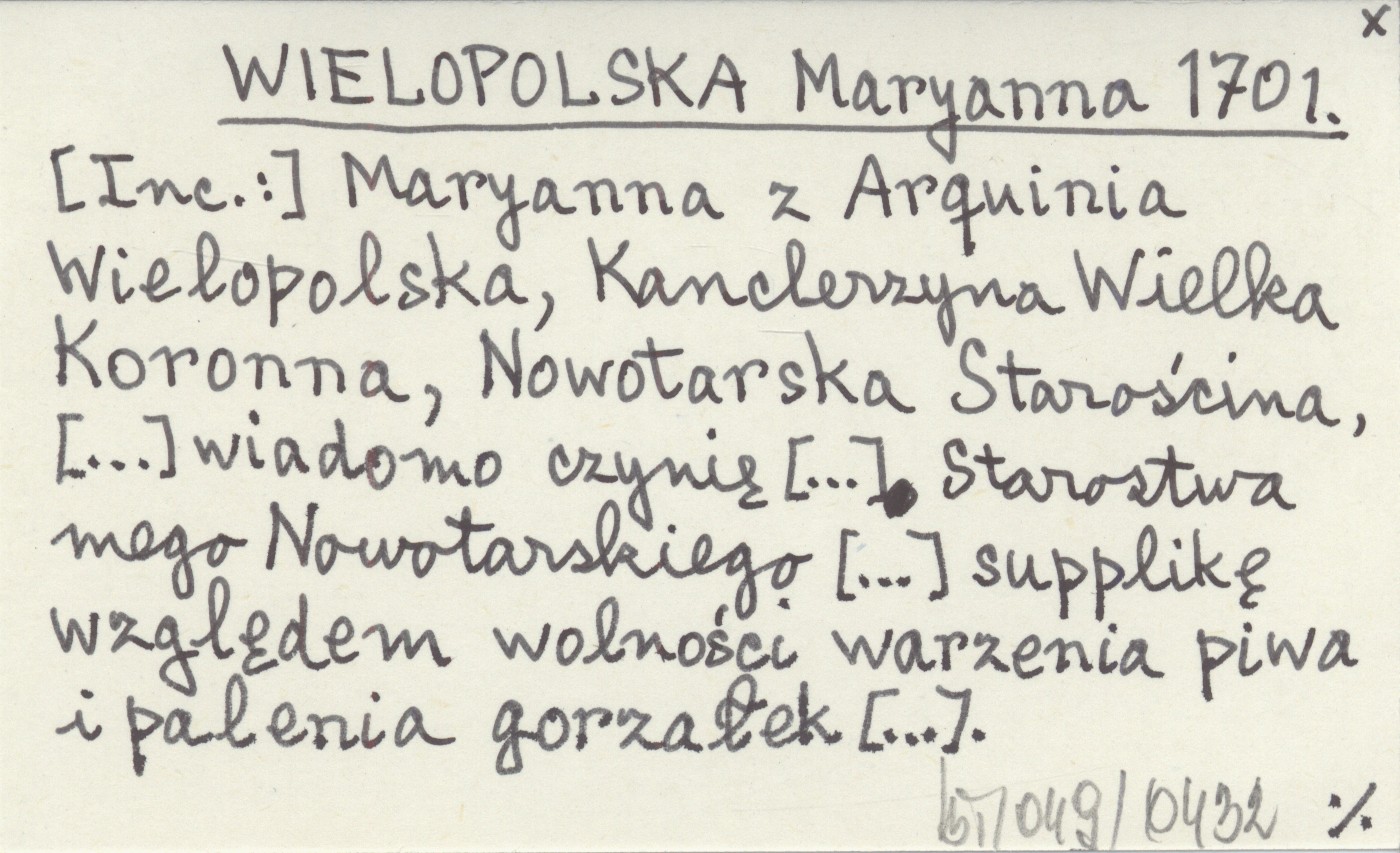 x
WIELOPOLSKA Maryanna 1701.
[Inc.:] Maryanna z Arquinia
Wielopolska, Kanclerzyna Wielka
Koronna, Nowotarska Starościna,
[...] wiadomo czynię [...] Starostwa
mego Nowotarskiego [...] supplikę
względem wolności warzenia piwa
i palenia gorzałek [...].
/049/0432 ·/.